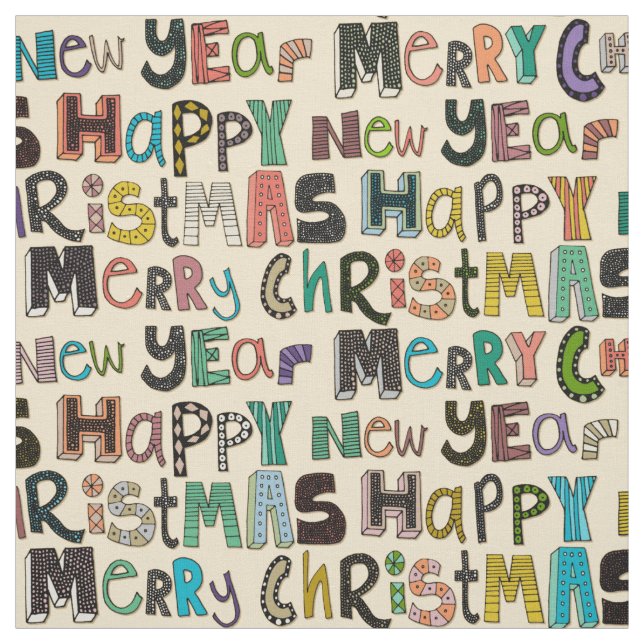 New YEar MERRY Ch
S HaPPY New YEar
RiStMAS HaPPY
MerrY ChRiStMAS
New YEar MERRY Ch
S HaPPY New YEar
RiStMAS HaPPY
MerrY ChRiStMAS